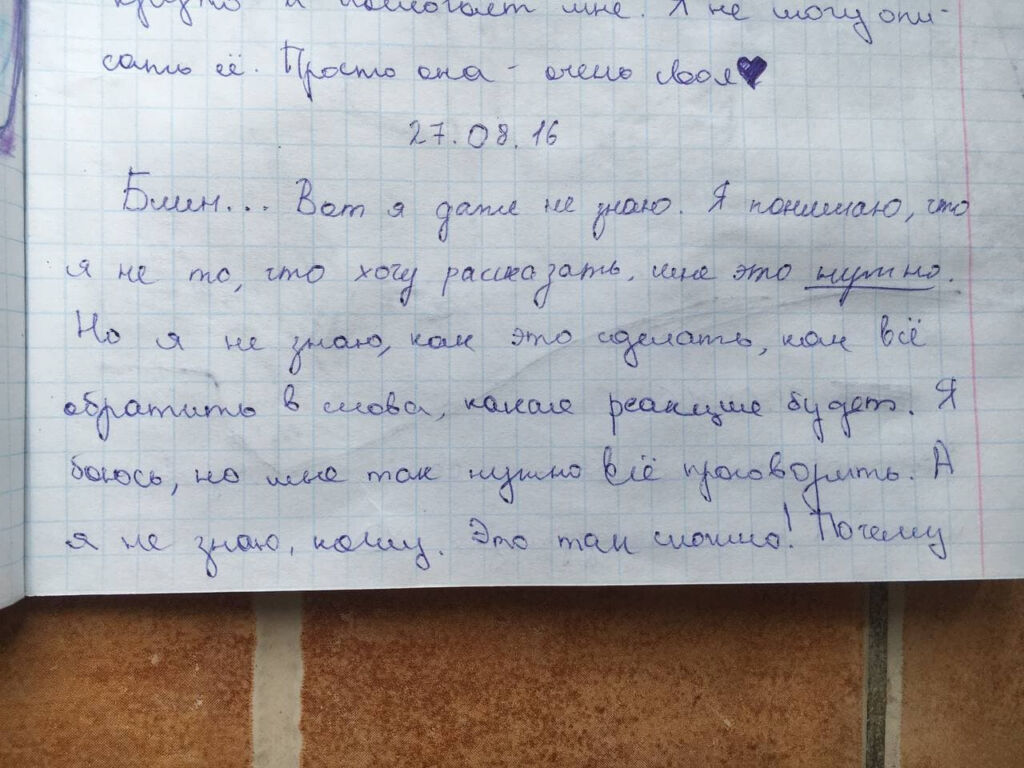 и помогает мне. Я не могу опи-
сать её. Просто она - очень своя
27.08.16
Блин... Вот я даже не знаю. Я понимаю, что
я не то, что хочу рассказать, мне это нужно.
Но я не знаю, как это сделать, как всё
обратить в слова, какая реакция будет. Я
боюсь, но мне так нужно всё проговорить. А
я не знаю, кому. Это так сложно! Почему